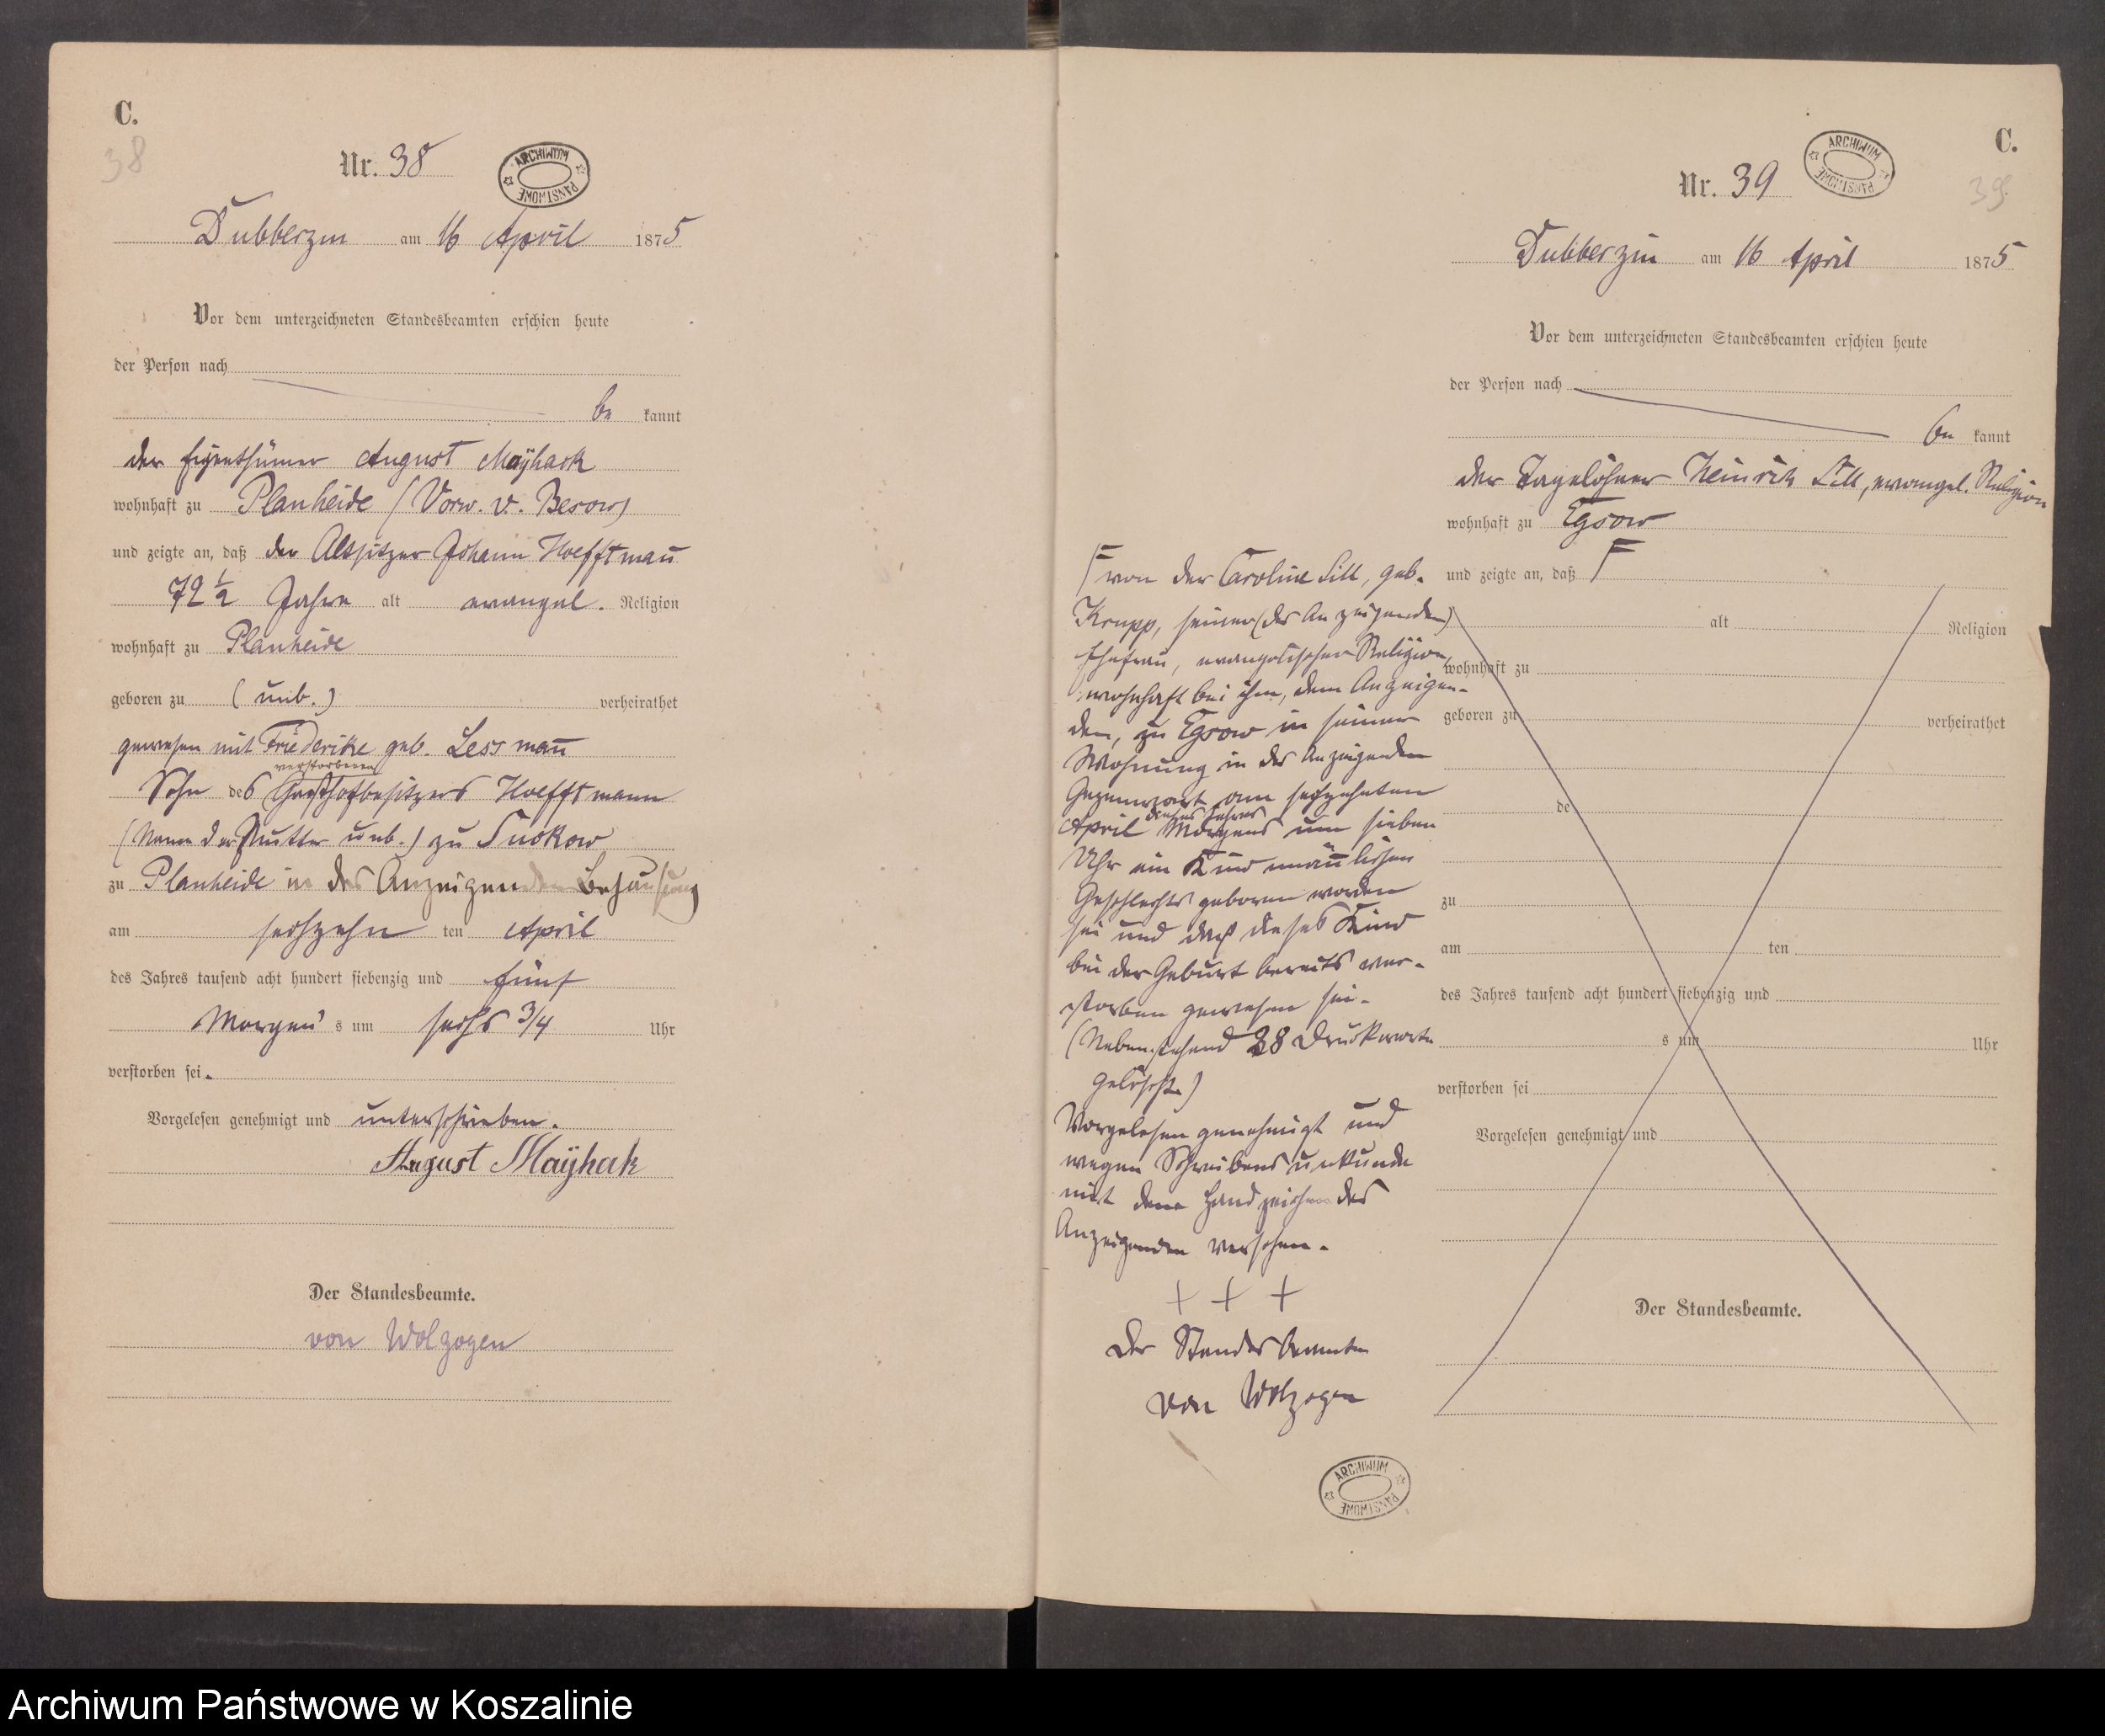 C.
38
Nr. 38
ARCHIWUM PAŃSTWOWE
Dubberzin am 16 April 1875
Vor dem unterzeichneten Standesbeamten erschien heute
der Person nach
be kannt
der Eigenthümer August Mayhack
wohnhaft zu Planheide (Vorw. v. Besow)
und zeigte an, daß der Altsitzer Johann Hoefftman̄
72 1/2 Jahre alt evangel. Religion
wohnhaft zu Planheide
geboren zu (unb.) verheirathet
gewesen mit Friederike geb. Lessman̄
verstorbenen
Sohn des Gasthofbesitzers Hoefftmann
(Name der Mutter unb.) zu Suckow
zu Planheide in des Anzeigenden Behausung
am sechszehn ten April
des Jahres tausend acht hundert siebenzig und fünf
Morgens um sechs 3/4 Uhr
verstorben sei.
Vorgelesen genehmigt und unterschrieben.
August Mayhak
Der Standesbeamte.
von Wolzogen
C.
39
Nr. 39
ARCHIWUM PAŃSTWOWE
Dubberzin am 16 April 1875
Vor dem unterzeichneten Standesbeamten erschien heute
der Person nach
be kannt
der Tagelöhner Heinrich Lill, evangel. Religion
wohnhaft zu Egsow
und zeigte an, daß F
alt Religion
wohnhaft zu
geboren zu verheirathet
de
zu
am ten
des Jahres tausend acht hundert siebenzig und
s um Uhr
verstorben sei
Vorgelesen genehmigt und
Der Standesbeamte.
F von der Caroline Lill, geb.
Krupp, seiner (des Anzeigenden)
Ehefrau, evangelischer Religion,
wohnhaft bei ihm, dem Anzeigen-
den, zu Egsow in seiner
Wohnung in des Anzeigenden
Gegenwart am sechzehnten
dieses Jahres
April Morgens um sieben
Uhr ein Kind män̄lichen
Geschlechts geboren worden
sei und daß dieses Kind
bei der Geburt bereits ver-
storben gewesen sei.
(Nebenstehend 28 Druckworte
gelöscht.)
Vorgelesen genehmigt und
wegen Schreibensunkunde
mit dem Handzeichen des
Anzeigenden versehen.
+ + +
Der Standesbeamte
von Wolzogen
ARCHIWUM PAŃSTWOWE
Archiwum Państwowe w Koszalinie